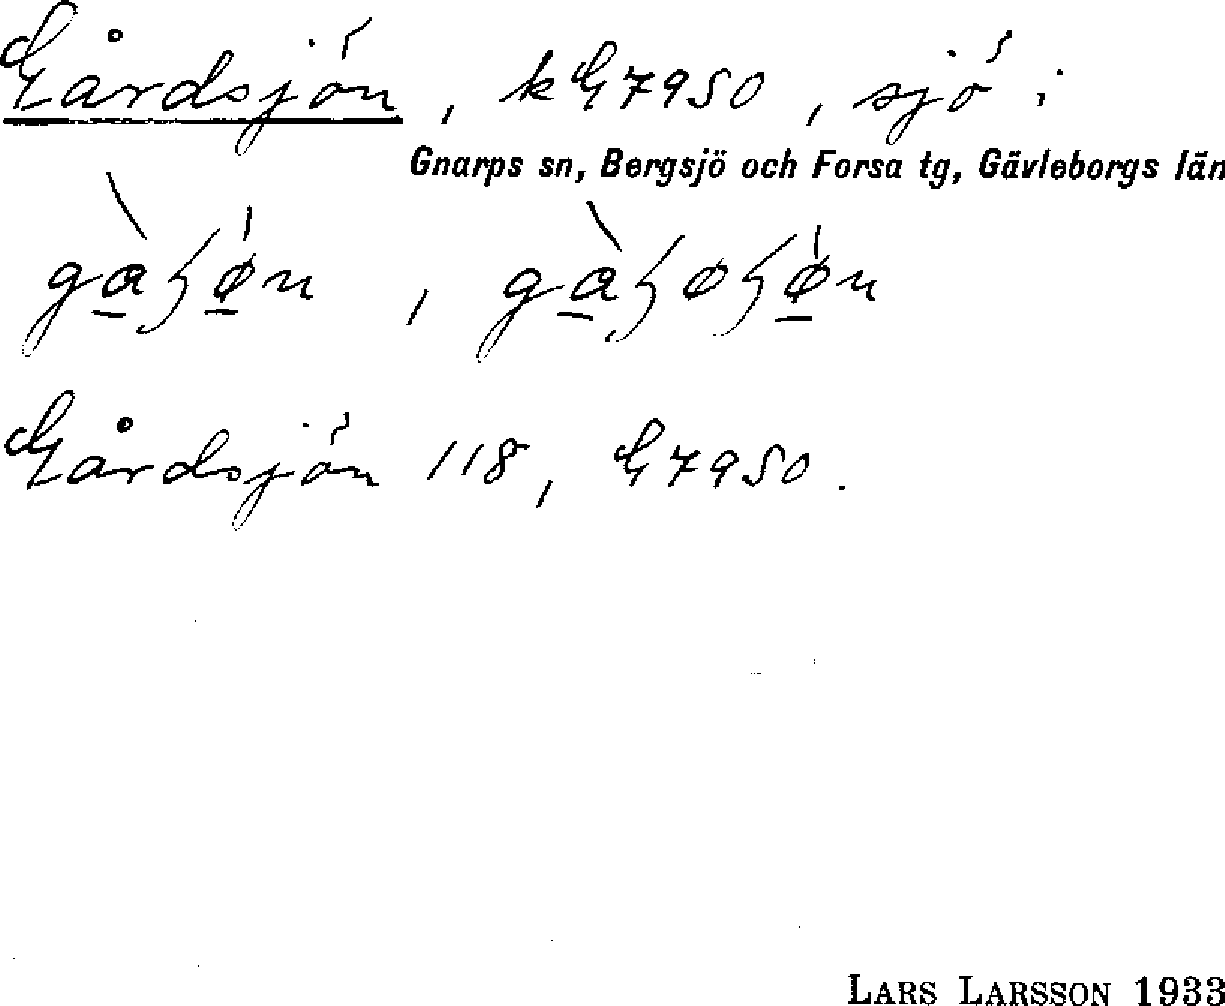 Gårdsjön, kG7950, sjö i
Gnarps sn, Bergsjö och Forsa tg, Gävleborgs län
Gårdsjön 118, G7950.
LARS LARSSON 1933